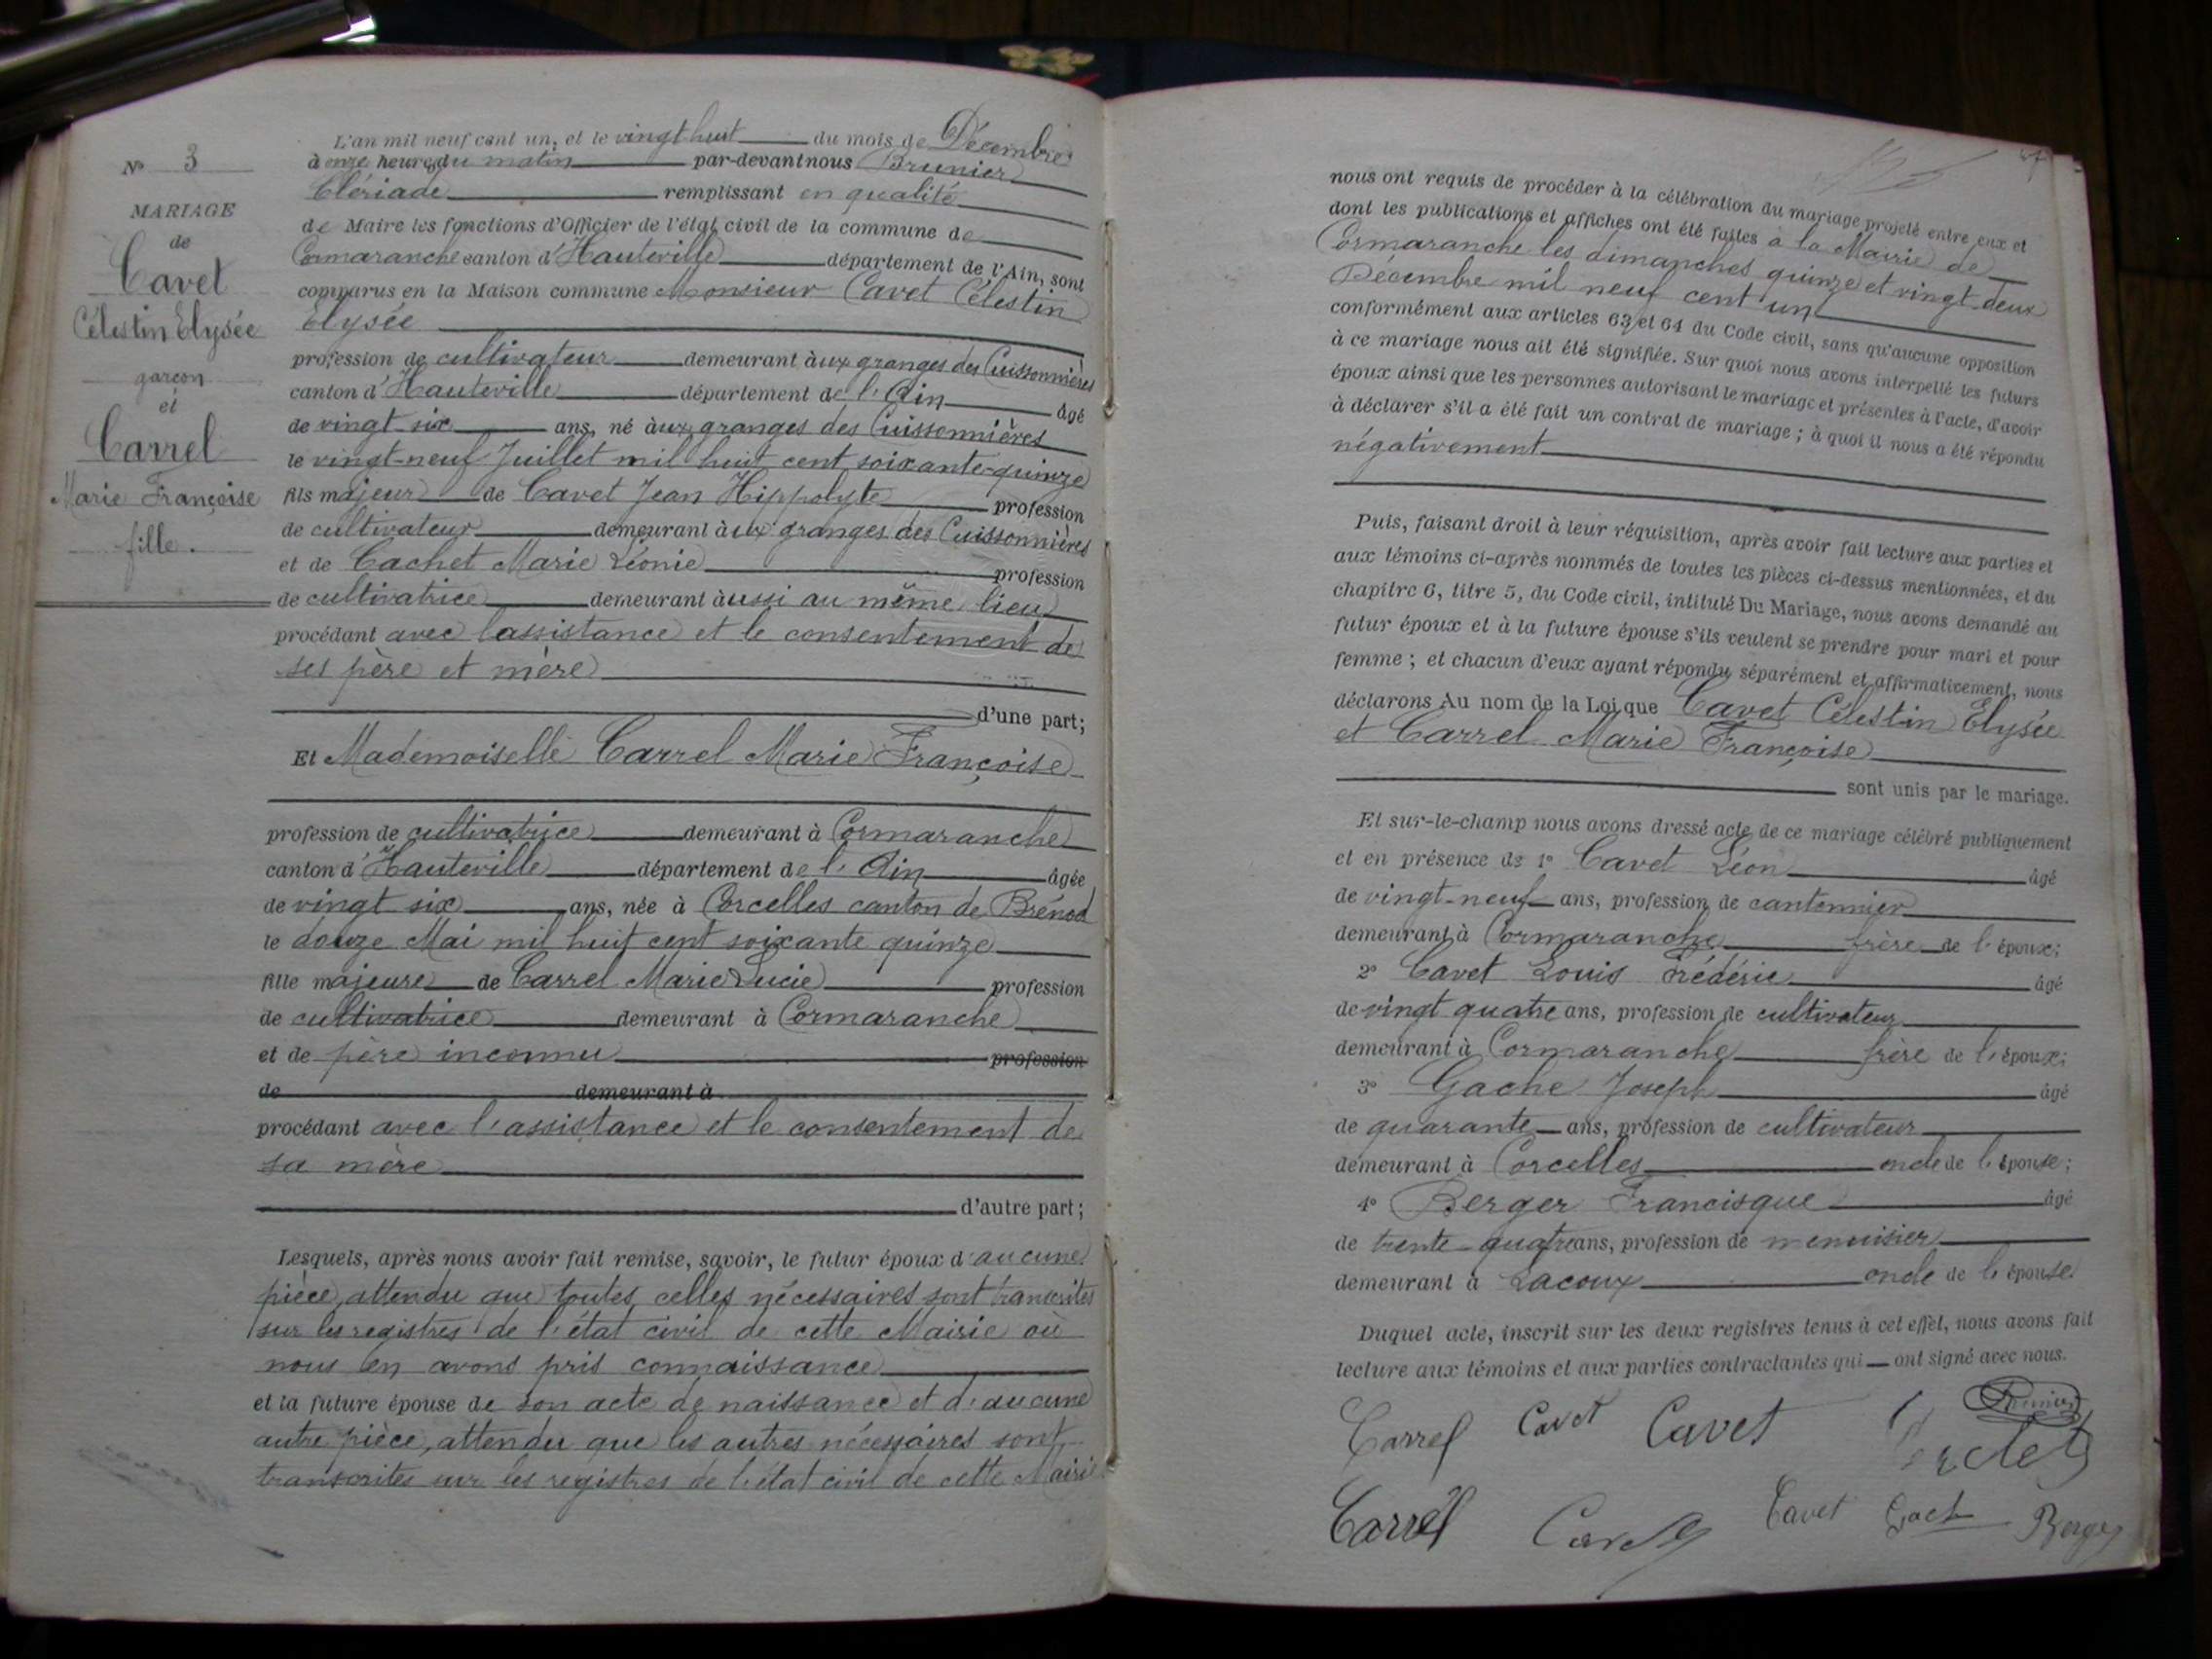 N° 3
MARIAGE
de
Cavet
Célestin Elysée
garçon
et
Carrel
Marie Françoise
fille.
L'an mil neuf cent un, et le vingt huit du mois de Décembre
à onze heures du matin par-devant nous Brunier
Clériade remplissant en qualité
de Maire les fonctions d'Officier de l'état civil de la commune de
Cormaranche canton d'Hauteville département de l'Ain, sont
comparus en la Maison commune Monsieur Cavet Célestin
Elysée
profession de cultivateur demeurant àux granges des Cuissonnières
canton d'Hauteville département de l'Ain âgé
de vingt-six ans, né àux granges des Cuissonnières
le vingt-neuf Juillet mil huit cent soixante-quinze
fils majeur de Cavet Jean Hippolyte profession
de cultivateur demeurant àux granges des Cuissonnières
et de Cachet Marie Léonie profession
de cultivatrice demeurant àussi au même lieu
procédant avec l'assistance et le consentement de
ses père et mère
d'une part;
Et Mademoiselle Carrel Marie Françoise
profession de cultivatrice demeurant à Cormaranche
canton d'Hauteville département de l'Ain âgée
de vingt six ans, née à Corcelles canton de Brénod
le douze Mai mil huit cent soixante quinze
fille majeure de Carrel Marie Lucie profession
de cultivatrice demeurant à Cormaranche
et de père inconnu profession
de demeurant à
procédant avec l'assistance et le consentement de
sa mère
d'autre part;
Lesquels, après nous avoir fait remise, savoir, le futur époux d'aucune
pièce, attendu que toutes celles nécessaires sont transcrites
sur les registres de l'état civil de cette Mairie où
nous en avons pris connaissance
et la future épouse de son acte de naissance et d'aucune
autre pièce, attendu que les autres nécessaires sont
transcrites sur les registres de l'état civil de cette Mairie
nous ont requis de procéder à la célébration du mariage projeté entre eux et
dont les publications et affiches ont été faites à la Mairie de
Cormaranche les dimanches quinze et vingt-deux
Décembre mil neuf cent un
conformément aux articles 63 et 64 du Code civil, sans qu'aucune opposition
à ce mariage nous ait été signifiée. Sur quoi nous avons interpellé les futurs
époux ainsi que les personnes autorisant le mariage et présentes à l'acte, d'avoir
à déclarer s'il a été fait un contrat de mariage; à quoi il nous a été répondu
négativement
Puis, faisant droit à leur réquisition, après avoir fait lecture aux parties et
aux témoins ci-après nommés de toutes les pièces ci-dessus mentionnées, et du
chapitre 6, titre 5, du Code civil, intitulé Du Mariage, nous avons demandé au
futur époux et à la future épouse s'ils veulent se prendre pour mari et pour
femme; et chacun d'eux ayant répondu séparément et affirmativement, nous
déclarons Au nom de la Loi que Cavet Célestin Elysée
et Carrel Marie Françoise
sont unis par le mariage.
Et sur-le-champ nous avons dressé acte de ce mariage célébré publiquement
et en présence de 1° Cavet Léon âgé
de vingt-neuf ans, profession de cantonnier
demeurant à Cormaranche frère de l'époux;
2° Cavet Louis Frédéric âgé
de vingt quatre ans, profession de cultivateur
demeurant à Cormaranche frère de l'époux;
3° Gache Joseph âgé
de quarante ans, profession de cultivateur
demeurant à Corcelles oncle de l'épouse;
4° Berger Francisque âgé
de trente-quatre ans, profession de menuisier
demeurant à Lacoux oncle de l'épouse
Duquel acte, inscrit sur les deux registres tenus à cet effet, nous avons fait
lecture aux témoins et aux parties contractantes qui ont signé avec nous.
Carrel Cavet Cavet Brunier
Carrel Cavet Cavet Gache Berger